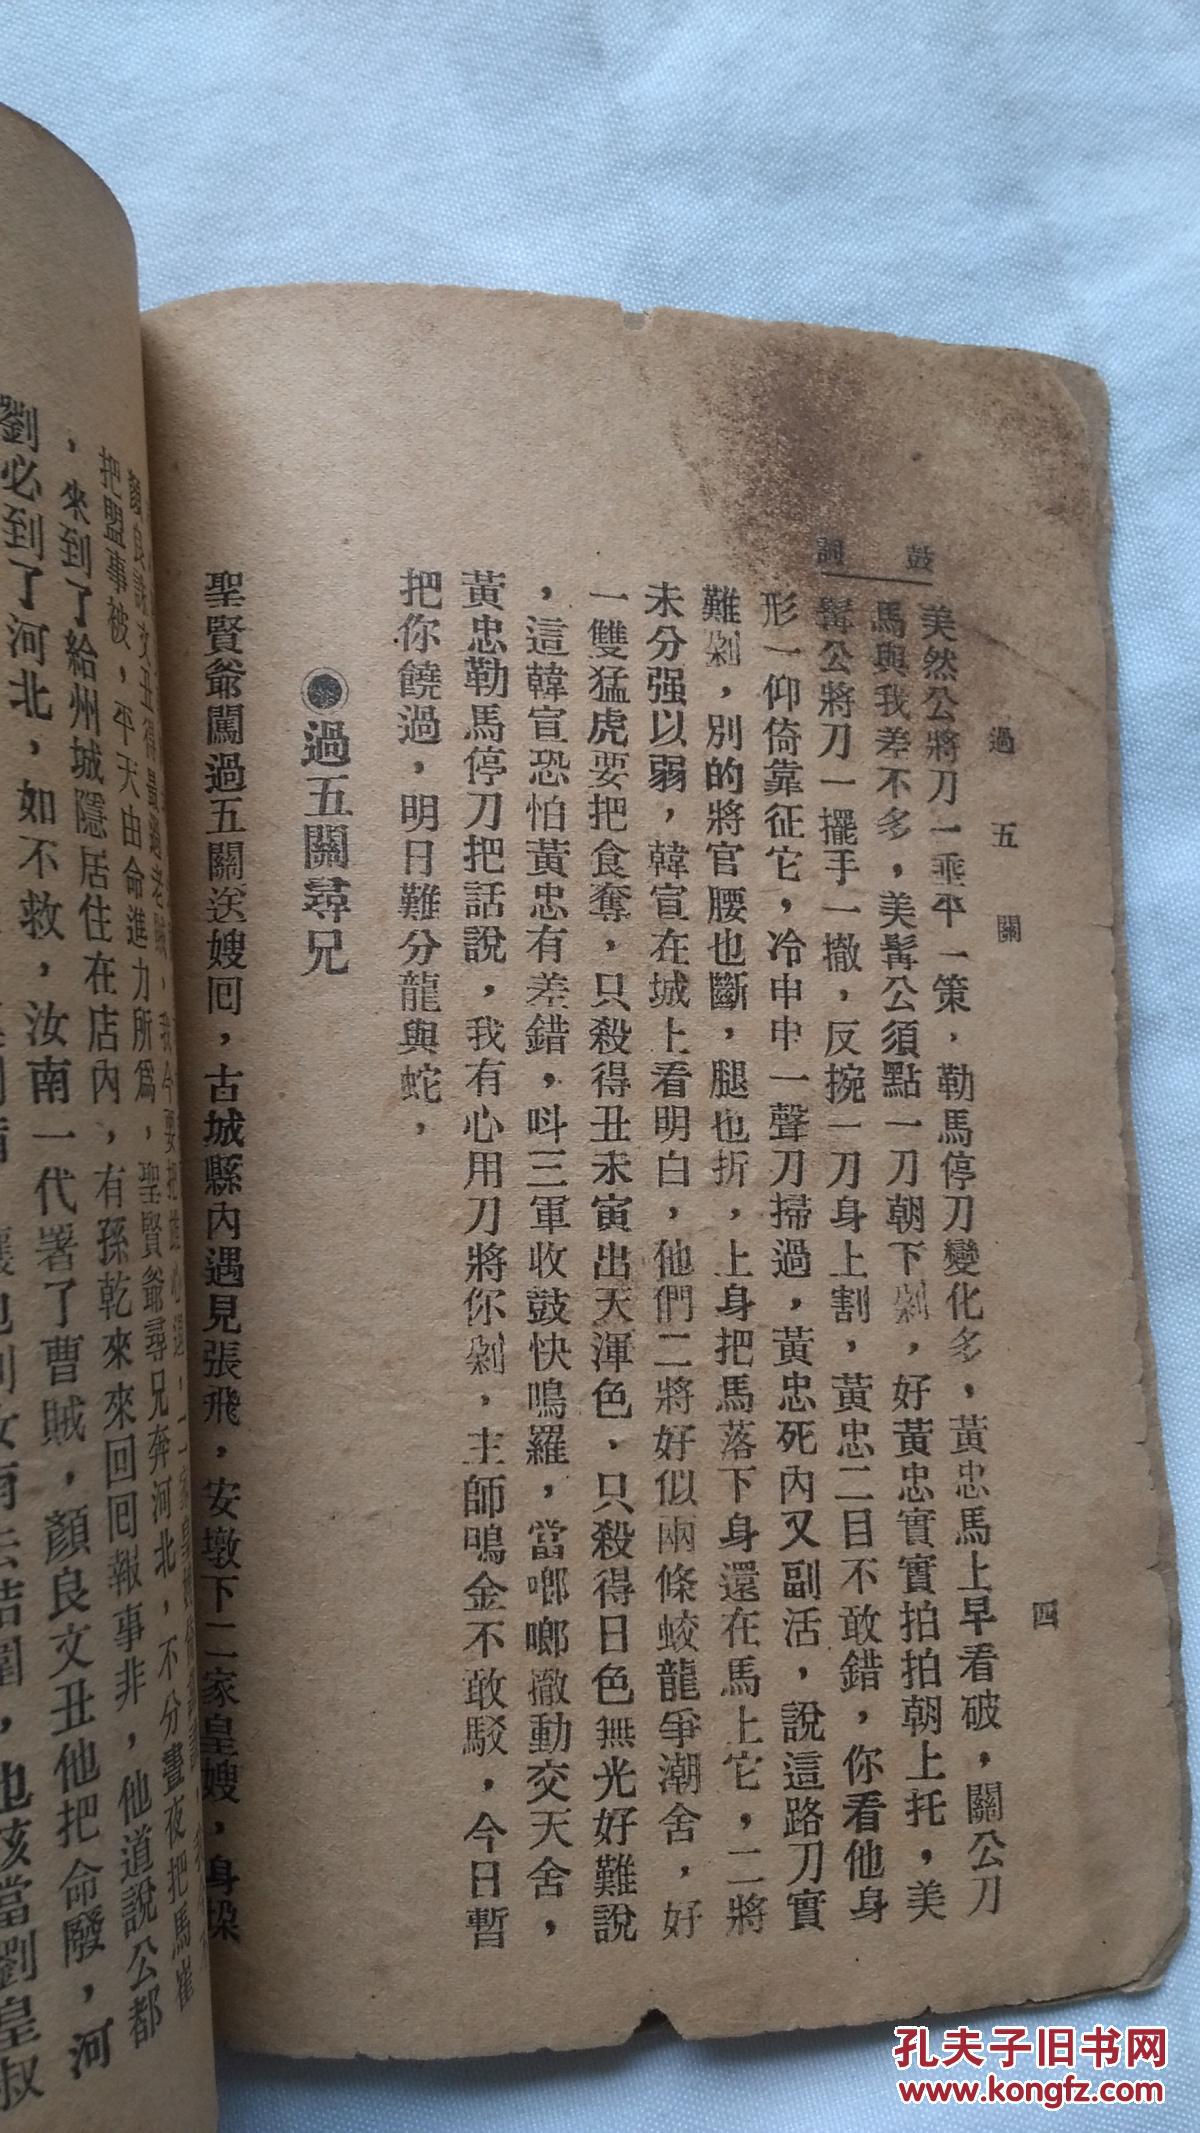 鼓詞
過五關
四
美然公將刀一垂平一策，勒馬停刀變化多，黃忠馬上早看破，關公刀
馬與我差不多，美髯公須點一刀朝下剁，好黃忠實實拍拍朝上托，美
髯公將刀一擺手一撤，反捥一刀身上割，黃忠二目不敢錯，你看他身
形一仰倚靠征它，冷申申一聲刀掃過，黃忠死內又副活，說這路刀實
難剁，別的將官腰也斷，腿也折，上身把馬落下身還在馬上它，二將
未分强以弱，韓宣在城上看明白，他們二將好似兩條蛟龍爭潮舍，好
一雙猛虎要把食奪，只殺得丑未寅出天渾色，只殺得日色無光好難說
，這韓宣恐怕黃忠有差錯，呌三軍收鼓快鳴羅，當啷啷撤動交天舍，
黃忠勒馬停刀把話說，我有心用刀將你剁，主師鳴金不敢駁，今日暫
把你饒過，明日難分龍與蛇，
過五關尋兄
聖賢爺闖過五關送嫂囘，古城縣內遇見張飛，安墩下二家皇嫂，身垛
把盟事被，平天由命進力所爲，聖賢爺尋兄奔河北，不分晝夜把馬崔
，來到了給州城隱居住在店內，有孫乾來來回回報事非，他道說公都
劉必到了河北，如不救，汝南一代署了曹賊，顏良文丑他把命廢，河
也該當劉皇叔
孔夫子旧书网
www.kongfz.com